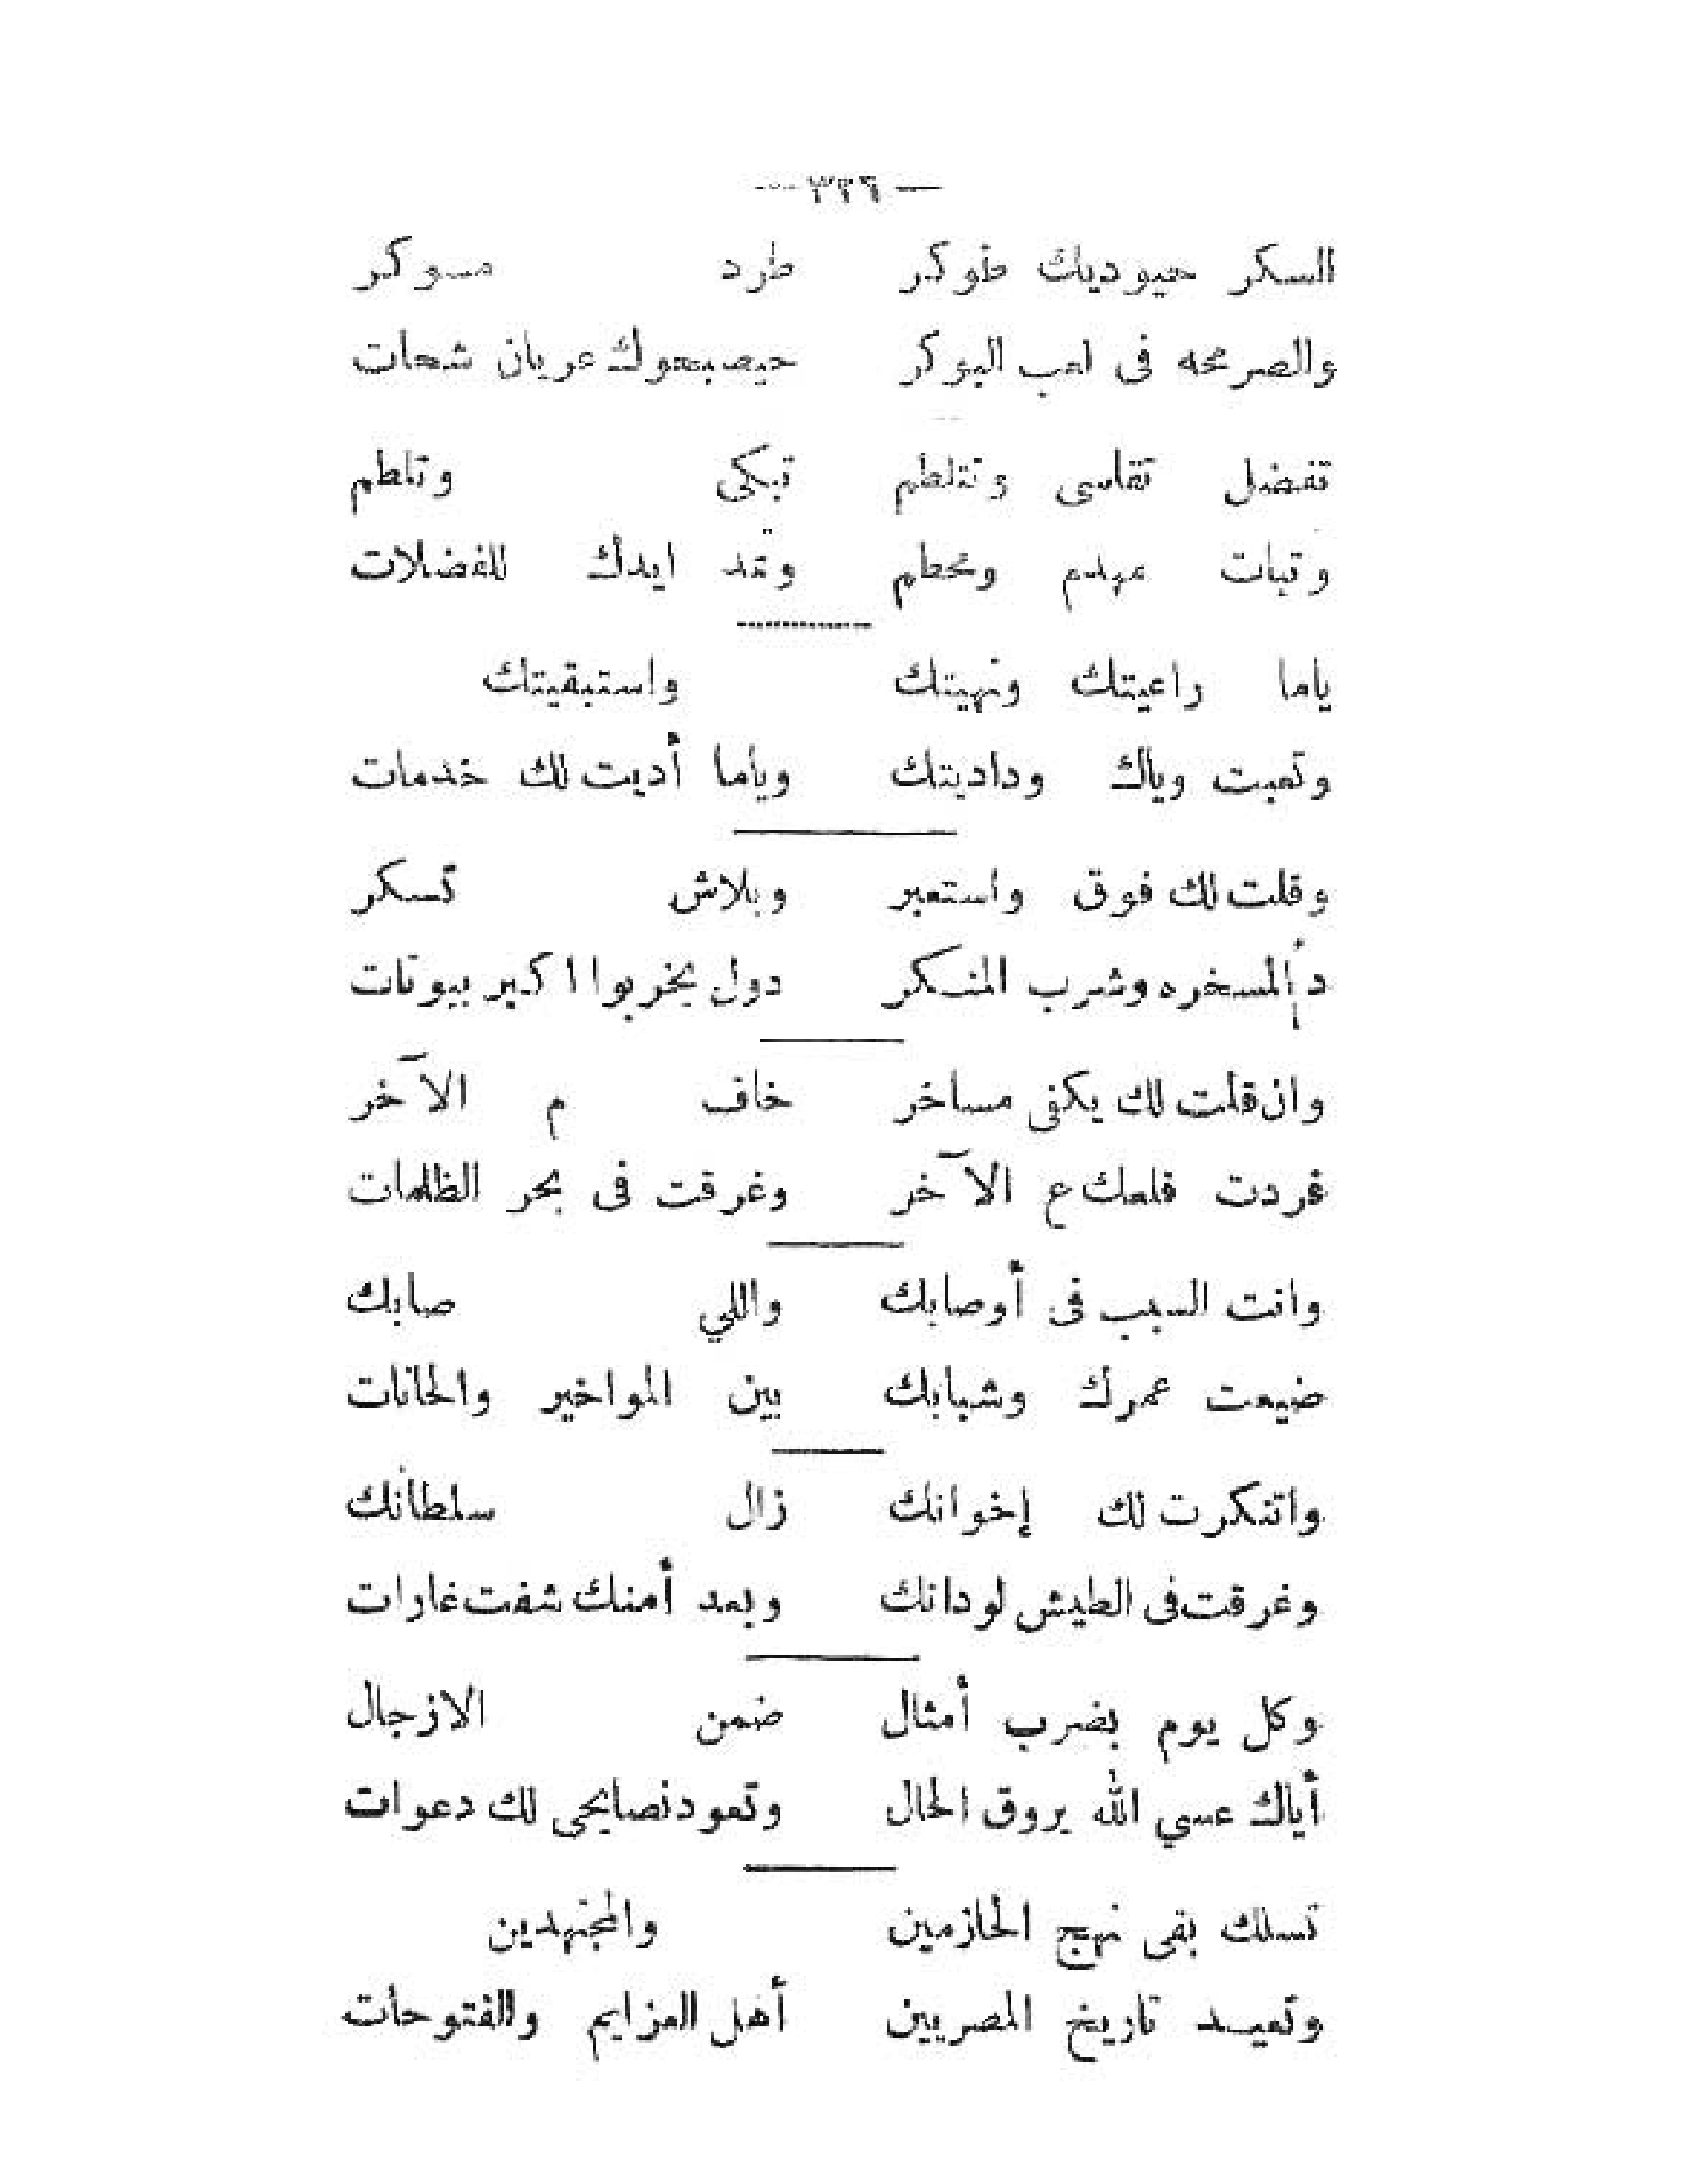 — ٣٢٦ —
السكر حيوديك طوكر طرد مسوكر
والصرمحه فى لعب البوكر حيصبحوك عريان شحات
تفضل تقاسى وتتلطم تبكى وتلطم
وتبات مهدم ومحطم وتمد ايدك للفضلات
ياما راعيتك ونهيتك واستبقيتك
وتعبت وياك وداديتك وياما أديت لك خدمات
وقلت لك فوق واستعبر وبلاش تسكر
دالمسخره وشرب المنكر دول يخربوا اكبر بيوتات
وان قلت لك يكفى مساخر خاف م الآخر
فردت قلعك ع الآخر وغرقت فى بحر الظلمات
وانت السبب فى أوصابك واللي صابك
ضيعت عمرك وشبابك بين المواخير والحانات
واتنكرت لك إخوانك زال سلطانك
وغرقت فى الطيش لودانك وبعد أمنك شفت غارات
وكل يوم بضرب أمثال ضمن الازجال
أياك عسي الله يروق الحال وتعود نصايحى لك دعوات
تسلك بقى نهج الحازمين والمجتهدين
وتعيد تاريخ المصريين أهل العزايم والفتوحات